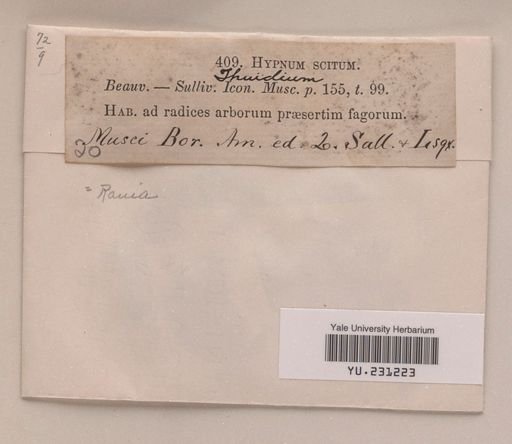 72
9
409. Hypnum scitum.
Thuidium
Beauv. — Sulliv. Icon. Musc. p. 155, t. 99.
Hab. ad radices arborum præsertim fagorum.
Musci Bor. Am. ed. 2. Sull. & Lsqx.
20
= Rauia
Yale University Herbarium
YU.231223